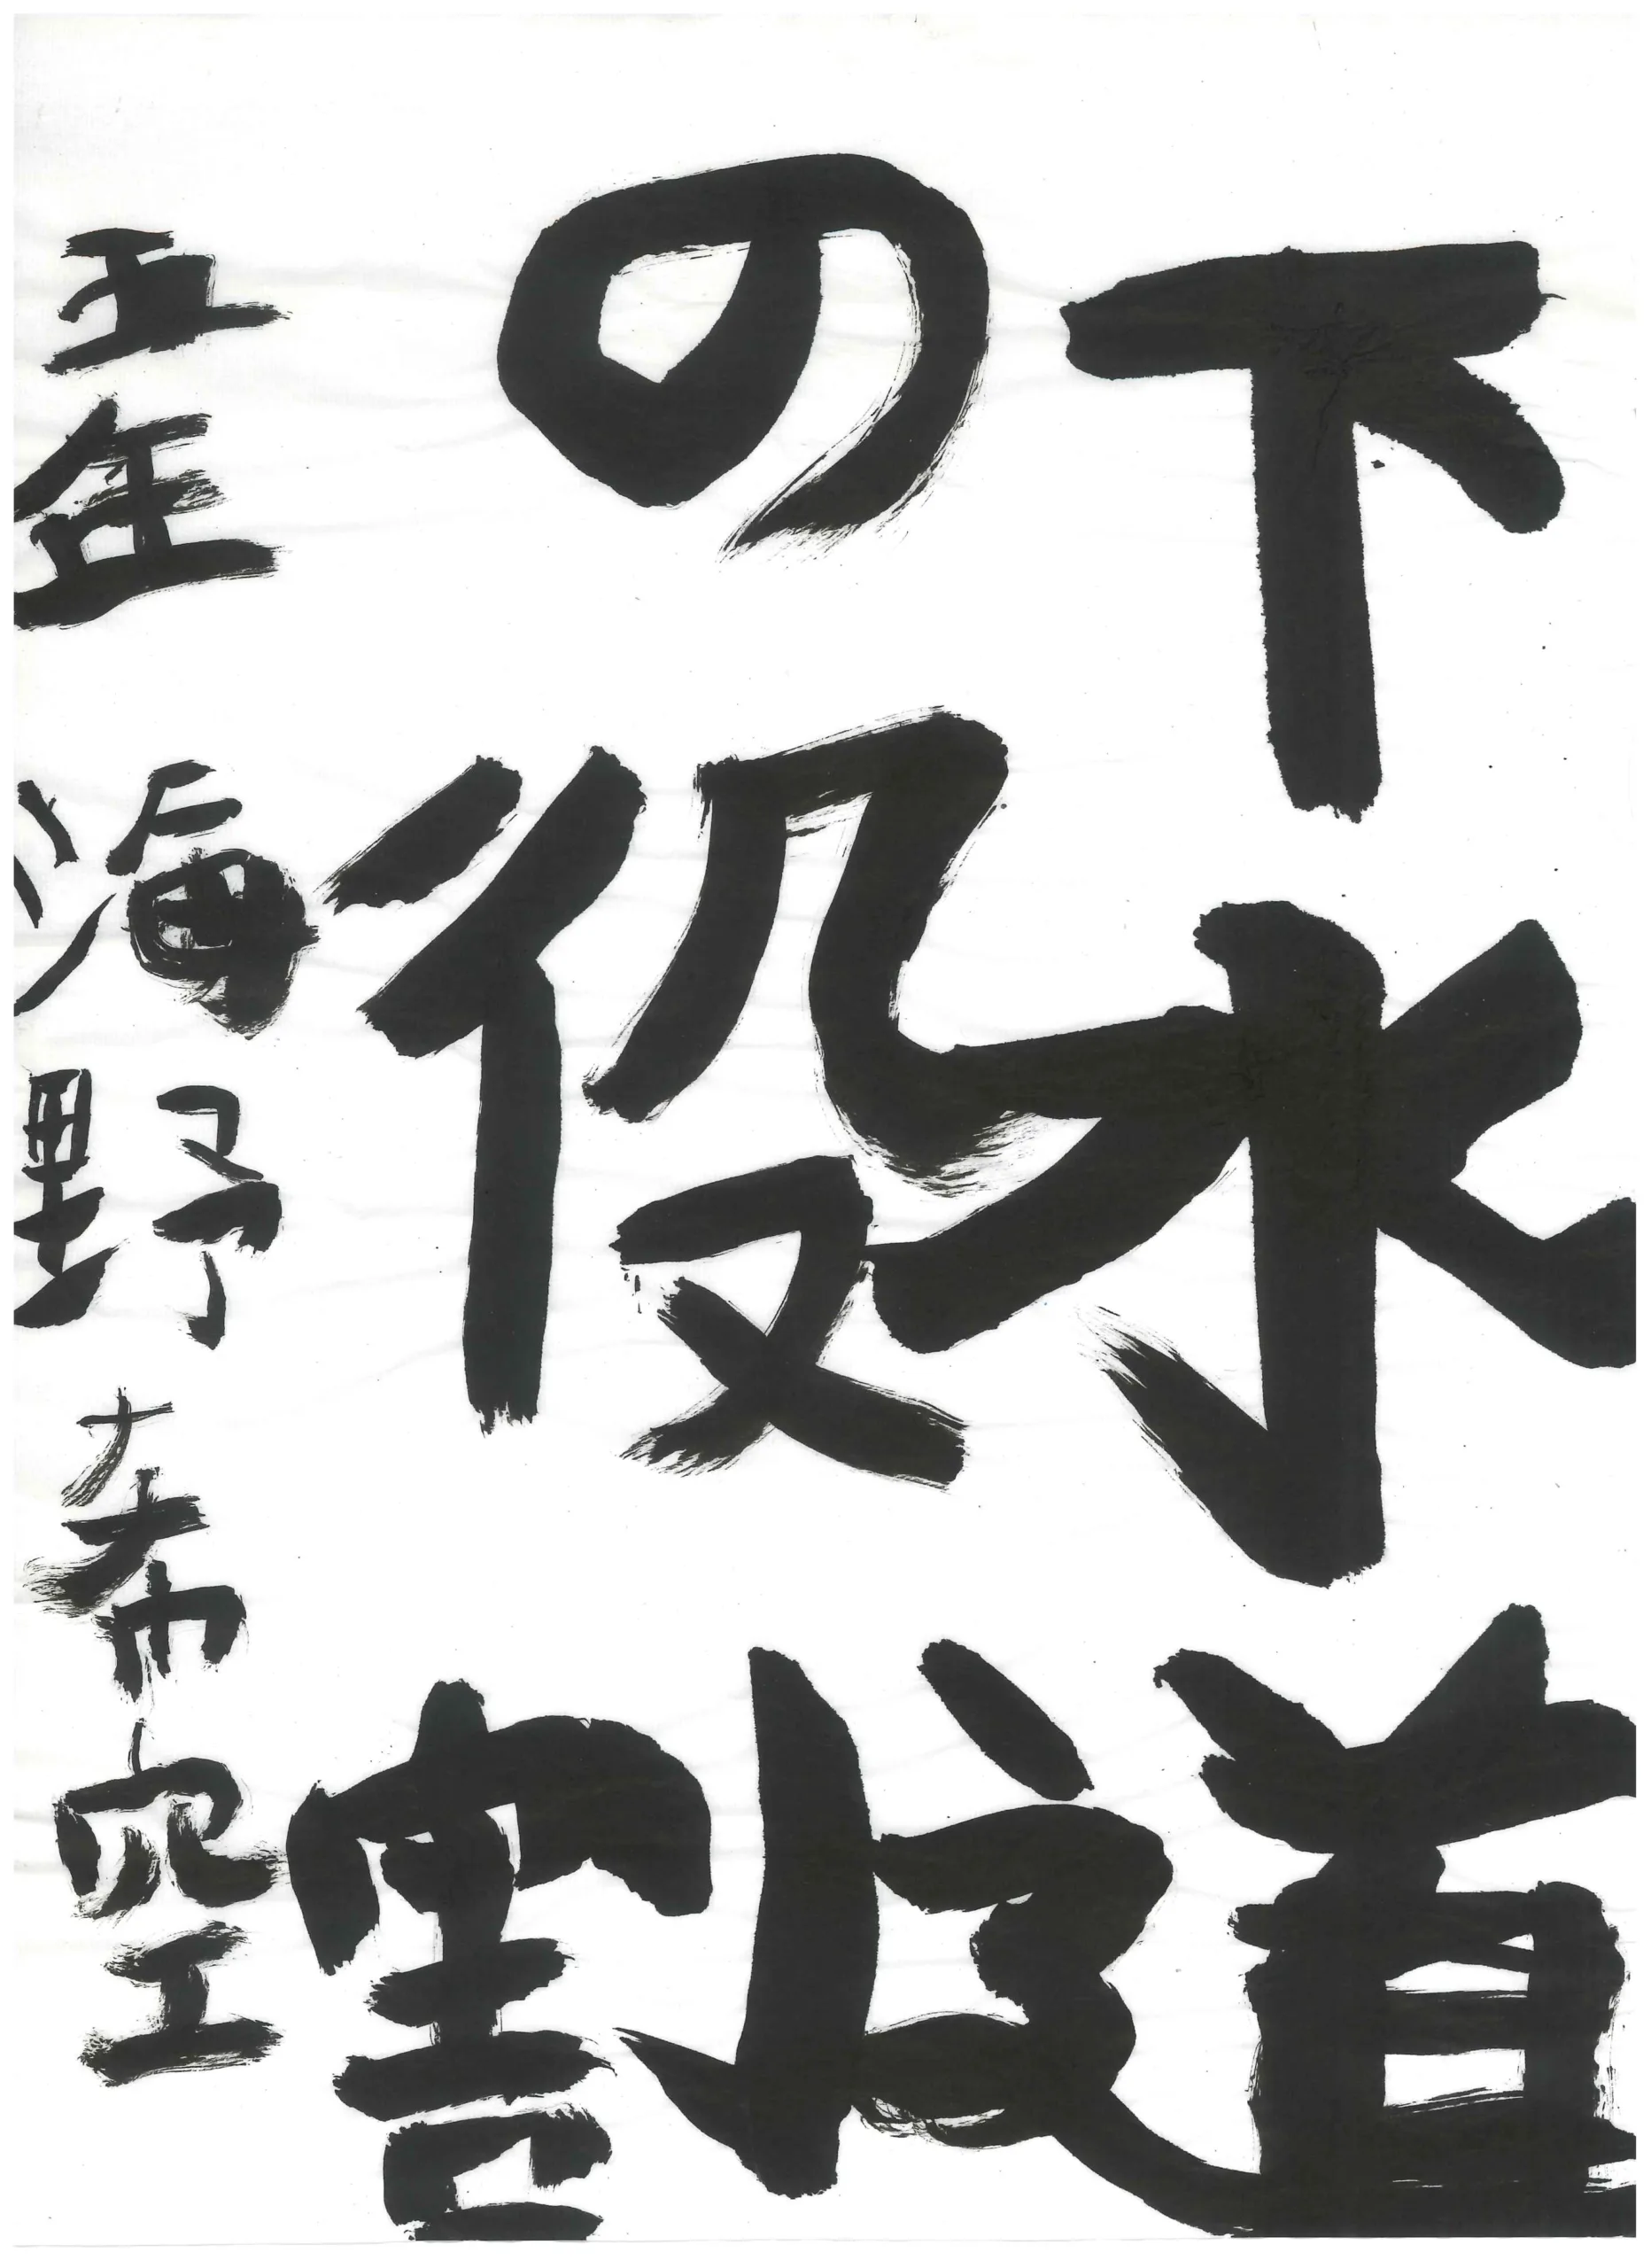 下水道
の役割
五年 海野希空